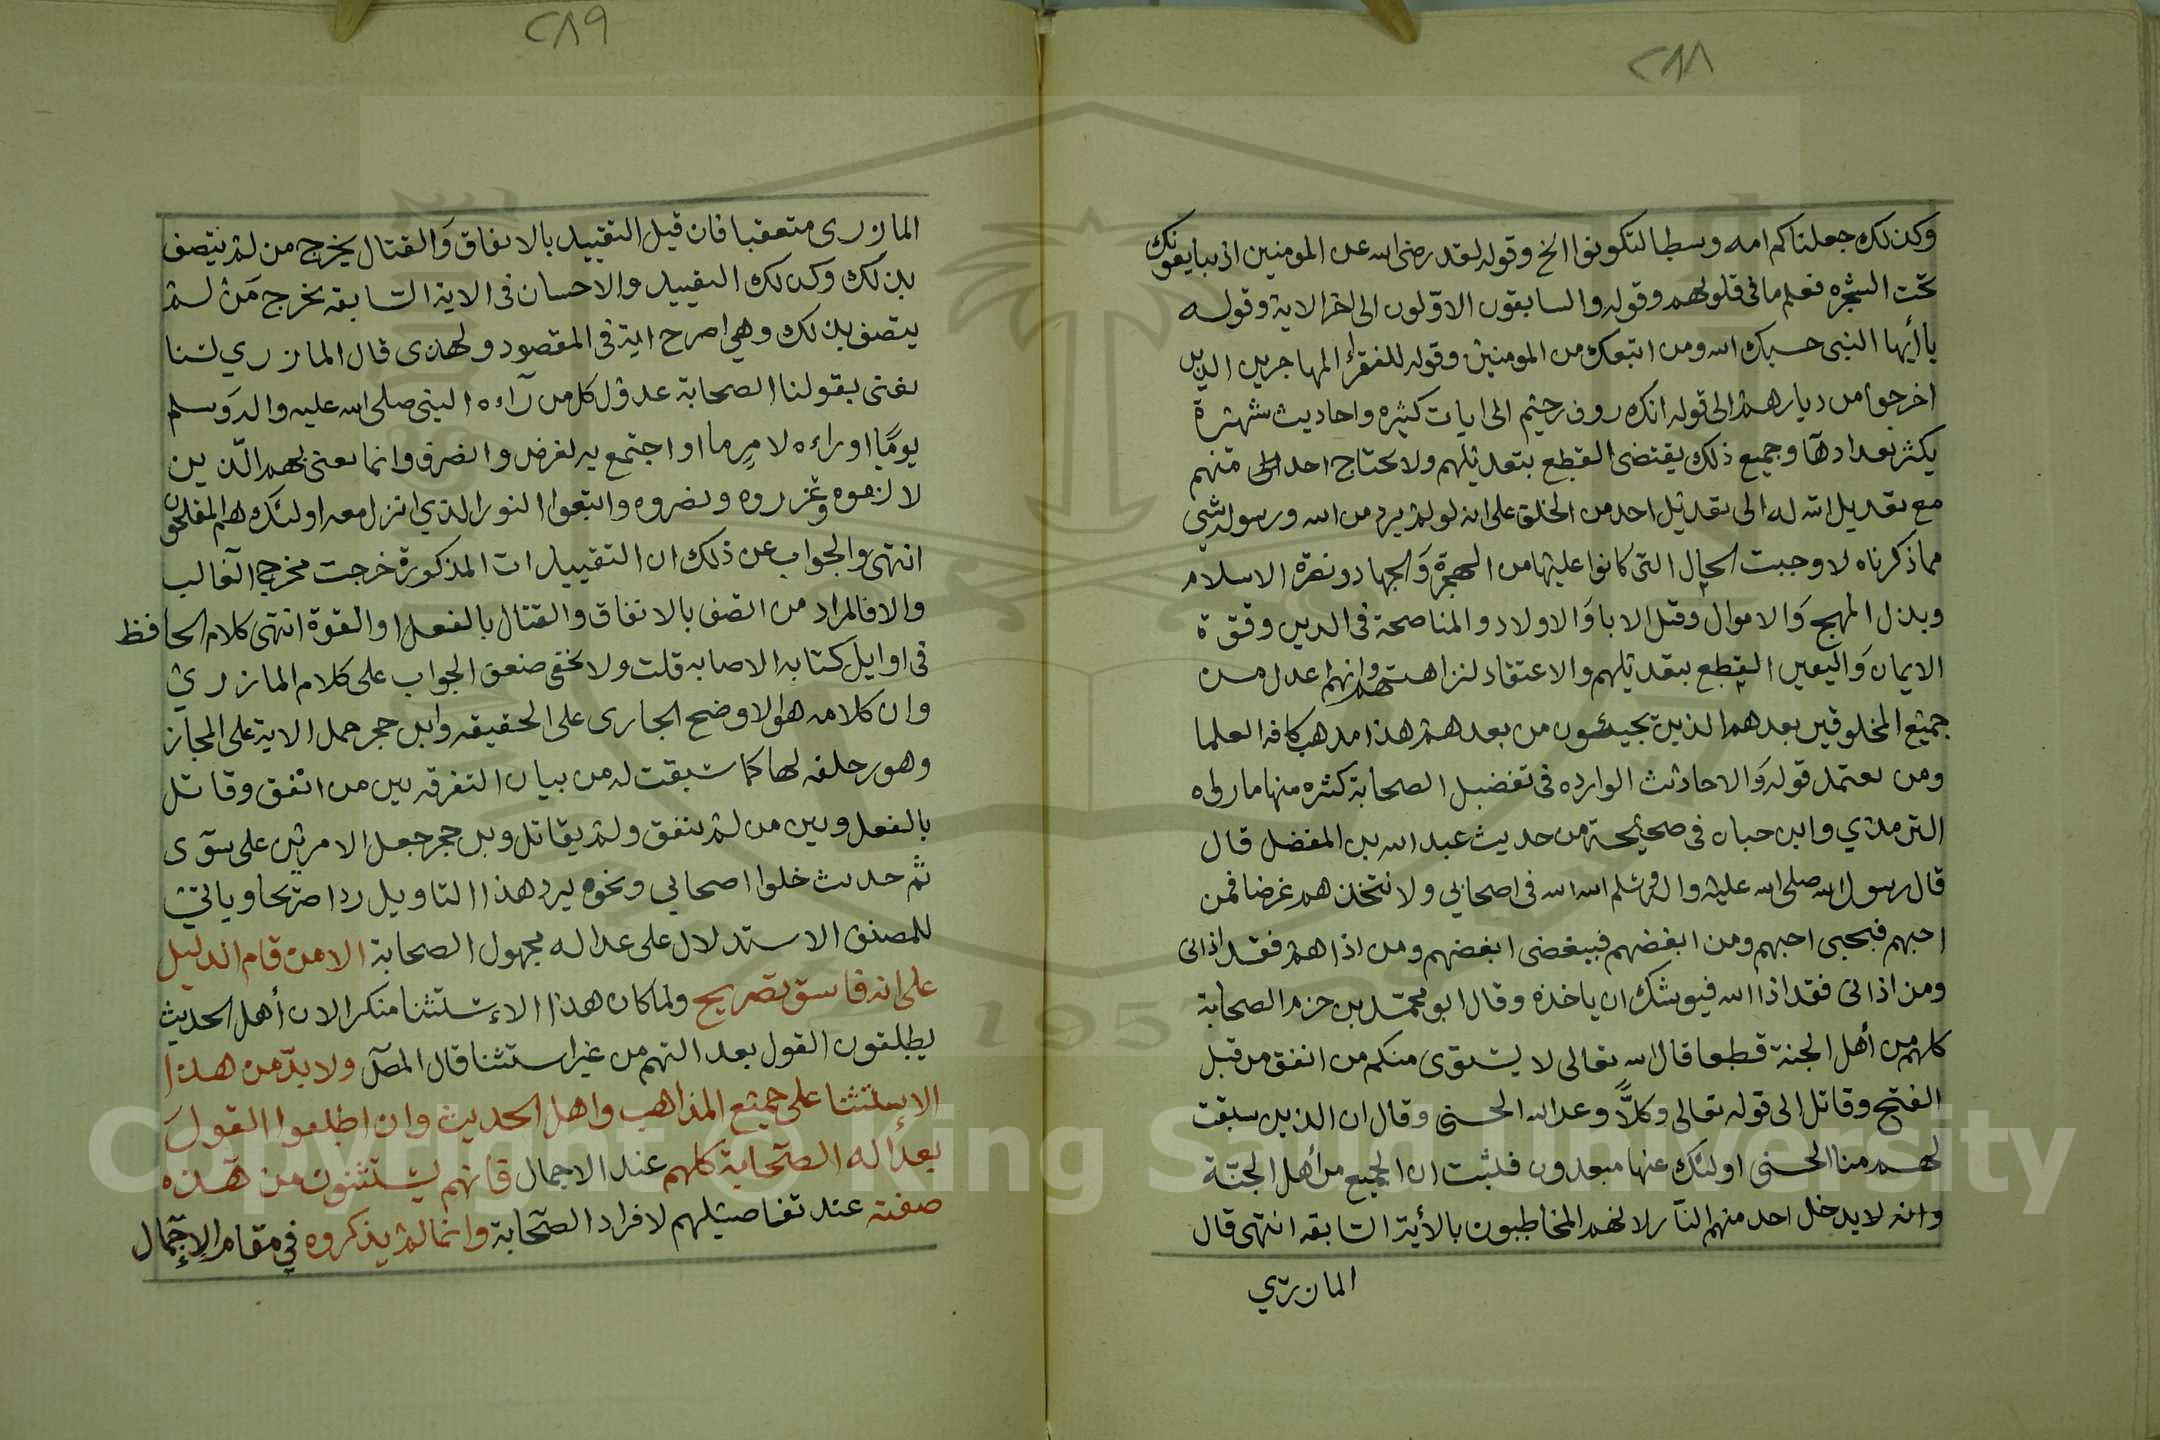 ٢٨٨
وكذلك جعلناكم امه وسطا لتكونوا الخ وقوله لقد رضى الله عن المومنين اذ يبايعونك
تحت الشجره فعلم ما في قلوبهم وقوله والسابقون الاوّلون الى اخر الاية وقوله
ياأيها النبى حسبك الله ومن اتبعك من المومنين وقوله للفقرا المهاجرين الذين
اخرجوا من ديارهم الى قوله انك روف رحيم الى ايات كثيره واحاديث شهيرة
يكثر تعدادها وجميع ذلك يقتضى القطع بتعديلهم ولا يحتاج احد منهم
مع تعديل الله له الى تعديل احد من الخلق على انه لو لم يرد من الله ورسوله شي
مما ذكرناه لاوجبت الحال التى كانوا عليها من الهجرة والجهاد ونصرة الاسلام
وبذل المهج والاموال وقتل الابا والاولاد والمناصحة في الدين وقوة
الايمان واليقين القطع بتعديلهم والاعتقاد لنزاهتهم وانهم اعدل من
جميع المخلوقين بعدهم الذين يجيئون من بعدهم هذا مذهب كافه العلما
ومن يعتمد قوله والاحاديث الوارده في تفضيل الصحابة كثيره منها ما رواه
الترمذي وابن حبان في صحيحة من حديث عبد الله بن المغفل قال
قال رسول الله صلى الله عليه واله وسلم الله الله في اصحابي ولا تتخذهم غرضا فمن
احبهم فبحبى احبهم ومن ابغضهم فببغضى ابغضهم ومن اذاهم فقد اذانى
ومن اذانى فقد اذا الله فيوشك ان ياخذه وقال ابو محمد بن حزم الصحابة
كلهم من أهل الجنة قطعا قال الله تعالى لا يستوى منكم من انفق من قبل
الفتح وقاتل الى قوله تعالى وكلاًّ وعد الله الحسنى وقال ان الذين سبقت
لهم منا الحسنى اولئك عنها مبعدون فثبت ان الجميع من أهل الجنّة
وانه لا يدخل احد منهم النار لانهم المخاطبون بالأية السابقه انتهى قال
المازري
٢٨٩
المازرى متعقبا فان قيل التقييد بالانفاق والقتال يخرج من لم يتصف
بذلك وكذلك التقييد والاحسان في الاية السابقه يخرج من لم
يتصف بذلك وهي اصرح اية في المقصود ولهذى قال المازري لسنا
نعنى بقولنا الصحابة عدول كل من رآه النبى صلى الله عليه واله وسلم
يومًا او راءه لامرٍ ما او اجتمع به لغرض وانصرف وانما نعنى بهم الّذين
لازموه وعزروه ونصروه واتبعوا النور الذي انزل معه اولئك هم المفلحون
انتهى والجواب عن ذلك ان التقييدات المذكورة خرجت مخرج الغالب
والا فالمراد من اتصف بالانفاق والقتال بالفعل او القوة انتهى كلام الحافظ
في اوايل كتابه الاصابه قلت ولا يخفى ضعف الجواب على كلام المازري
وان كلامه هو الاوضح الجارى على الحقيقه وابن حجر حمل الاية على المجاز
وهو كما سبقت له من بيان التفرقه بين من انفق وقاتل
بالفعل وبين من لم ينفق ولم يقاتل وبن حجر جعل الامرين على سوى
ثم حديث خلوا اصحابي ونحوه يرد هذا التاويل ردا صريحا وياتي
للمصنف الاستدلال على عداله مجهول الصحابة الا من قام الدليل
على انه فاسق تصريح ولما كان هذا الاستثنا منكرا لان أهل الحديث
يطلقون القول بعدالتهم من غير استثنا قال المصّ ولا بدّ من هذا
الاستثنا على جميع المذاهب واهل الحديث وان اطلقوا القول
بعدالة الصحابة كلهم عند الاجمال فانهم يستثنون من هذه
صفته عند تفاصيلهم لافراد الصحابة وانما لم يذكروه في مقام الإجمال
Copyright © King Saud University
1957